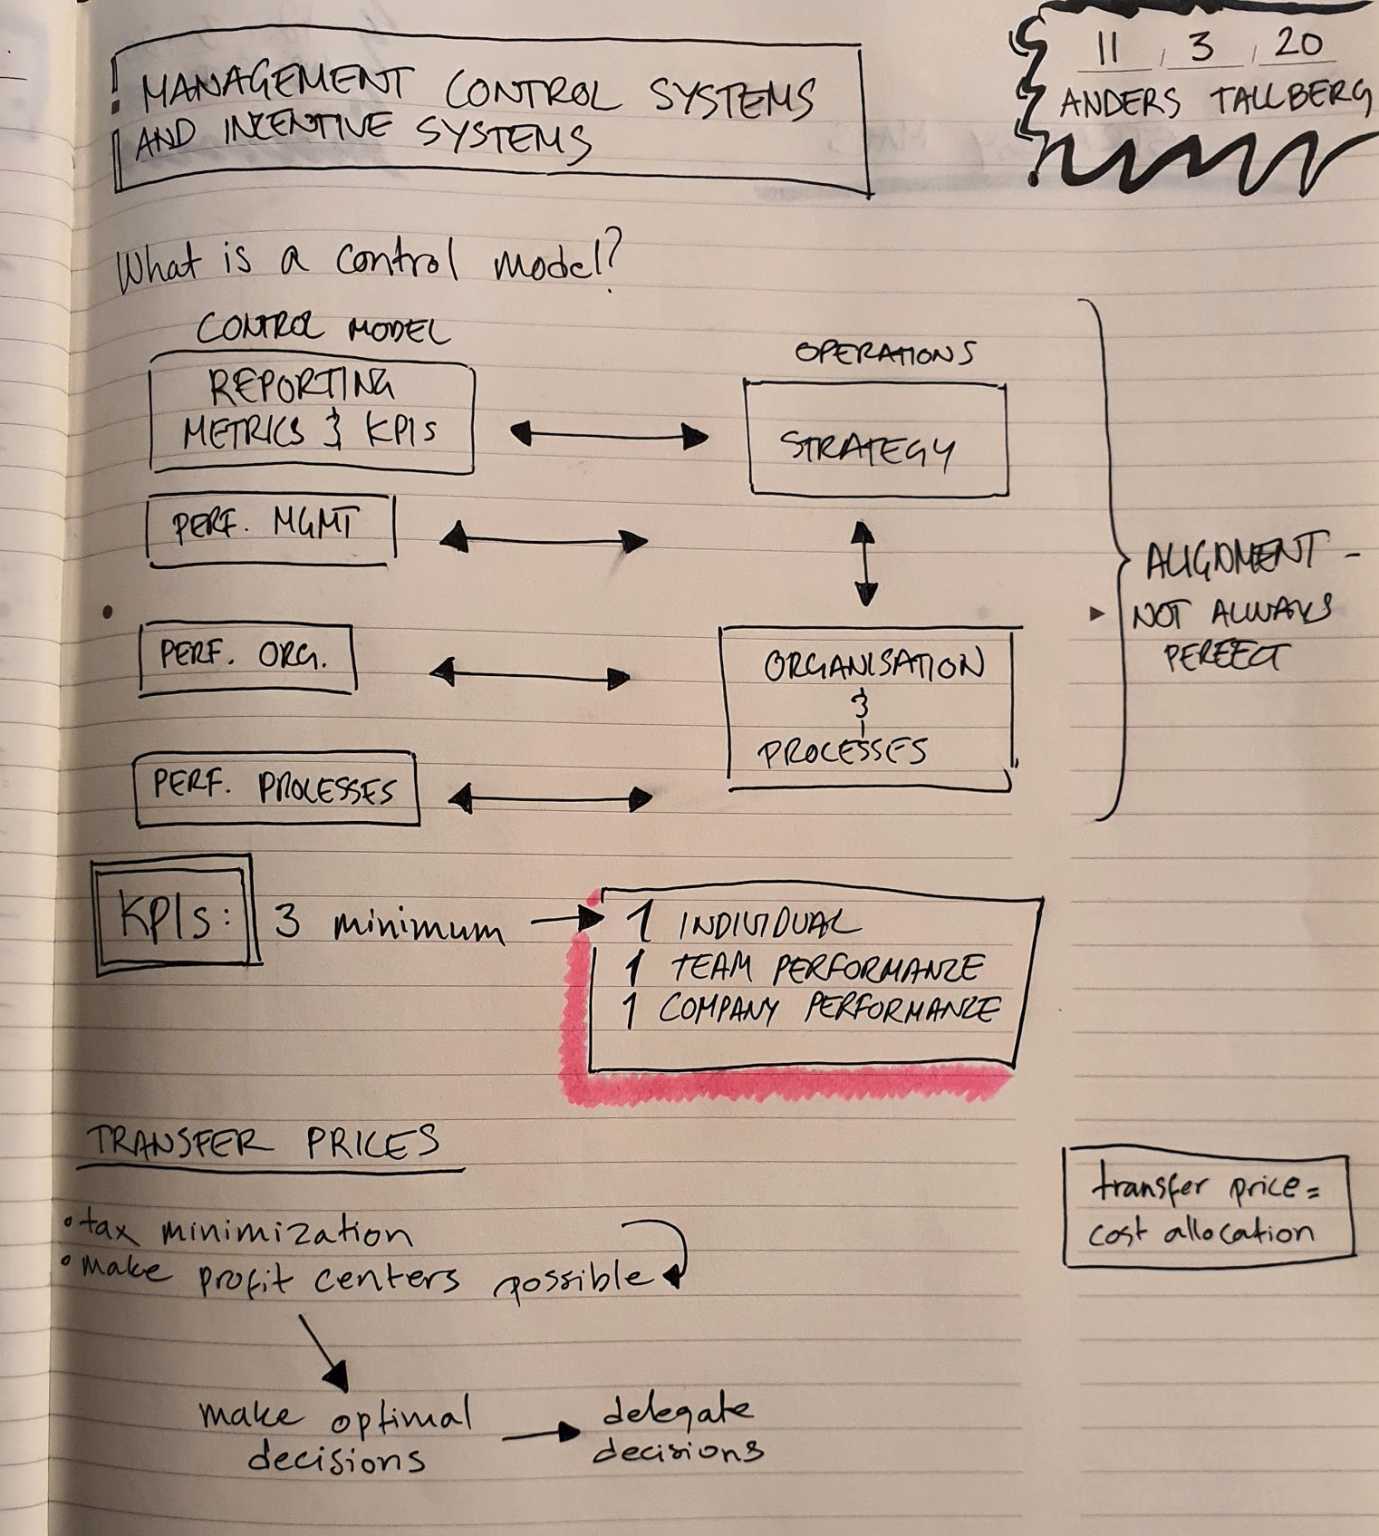 ! MANAGEMENT CONTROL SYSTEMS
AND INCENTIVE SYSTEMS
11, 3, 20
ANDERS TALLBERG
What is a control model?
CONTROL MODEL
REPORTING
METRICS & KPIs
OPERATIONS
STRATEGY
PERF. MGMT
PERF. ORG.
ORGANISATION
&
PROCESSES
PERF. PROCESSES
ALIGNMENT -
NOT ALWAYS
PERFECT
KPIs: 3 minimum
1 INDIVIDUAL
1 TEAM PERFORMANCE
1 COMPANY PERFORMANCE
TRANSFER PRICES
• tax minimization
• make profit centers possible
transfer price =
cost allocation
make optimal
decisions
delegate
decisions